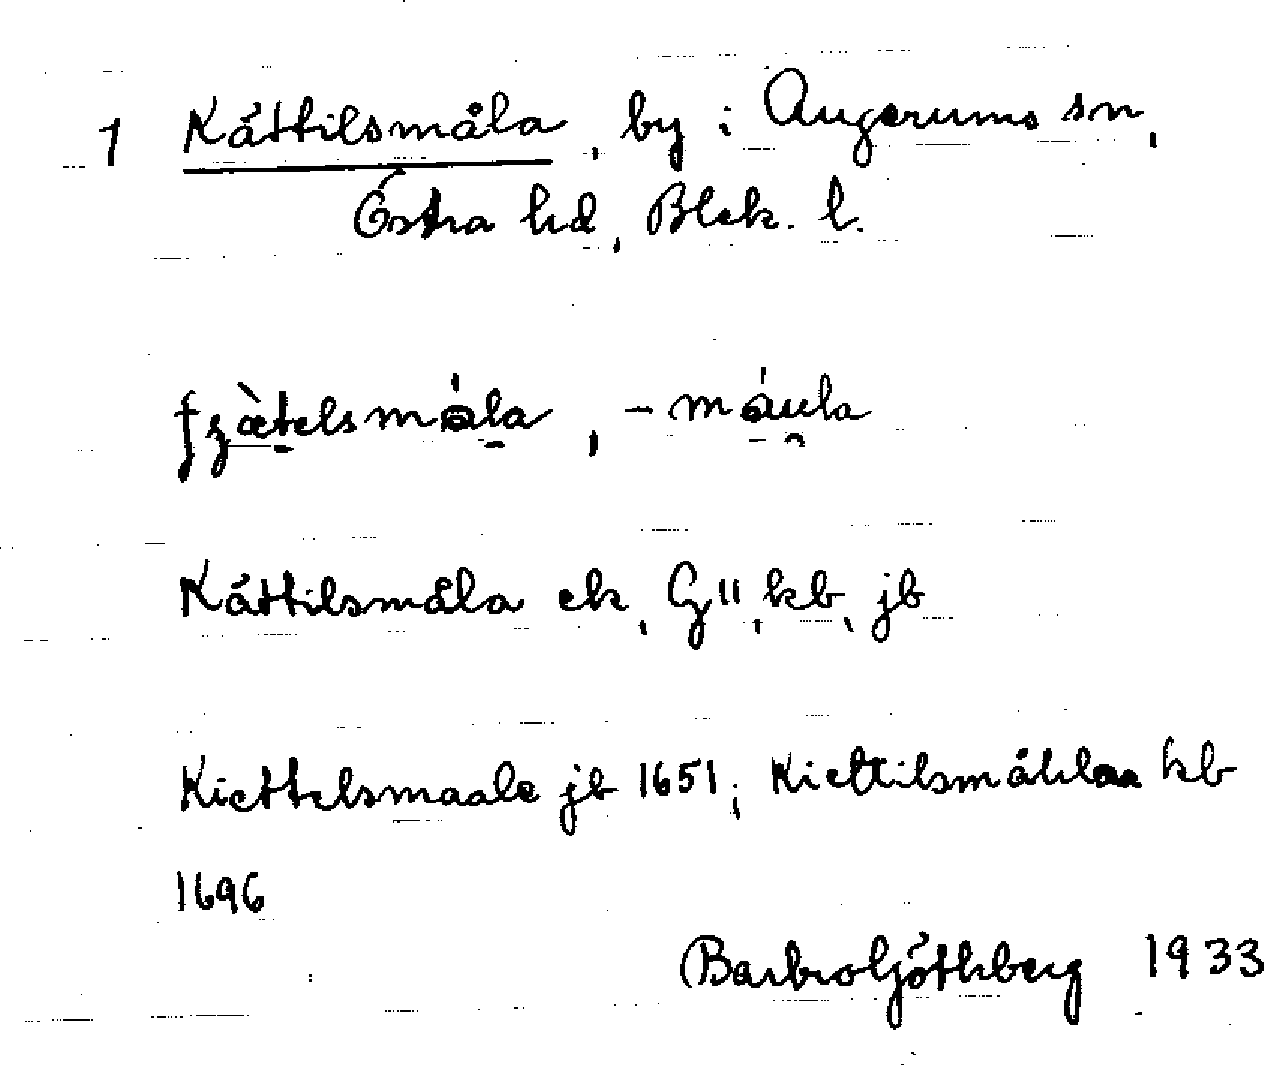 1 Kättilsmåla, by i Augerums sn,
Östra hd, Blek. l.
fȝæ̀telsmåla, -måula
Kättilsmåla ek, G11, kb, jb
Kiettelsmaale jb 1651; Kiettilsmåhla kb
1696
Barbro Göthberg 1933